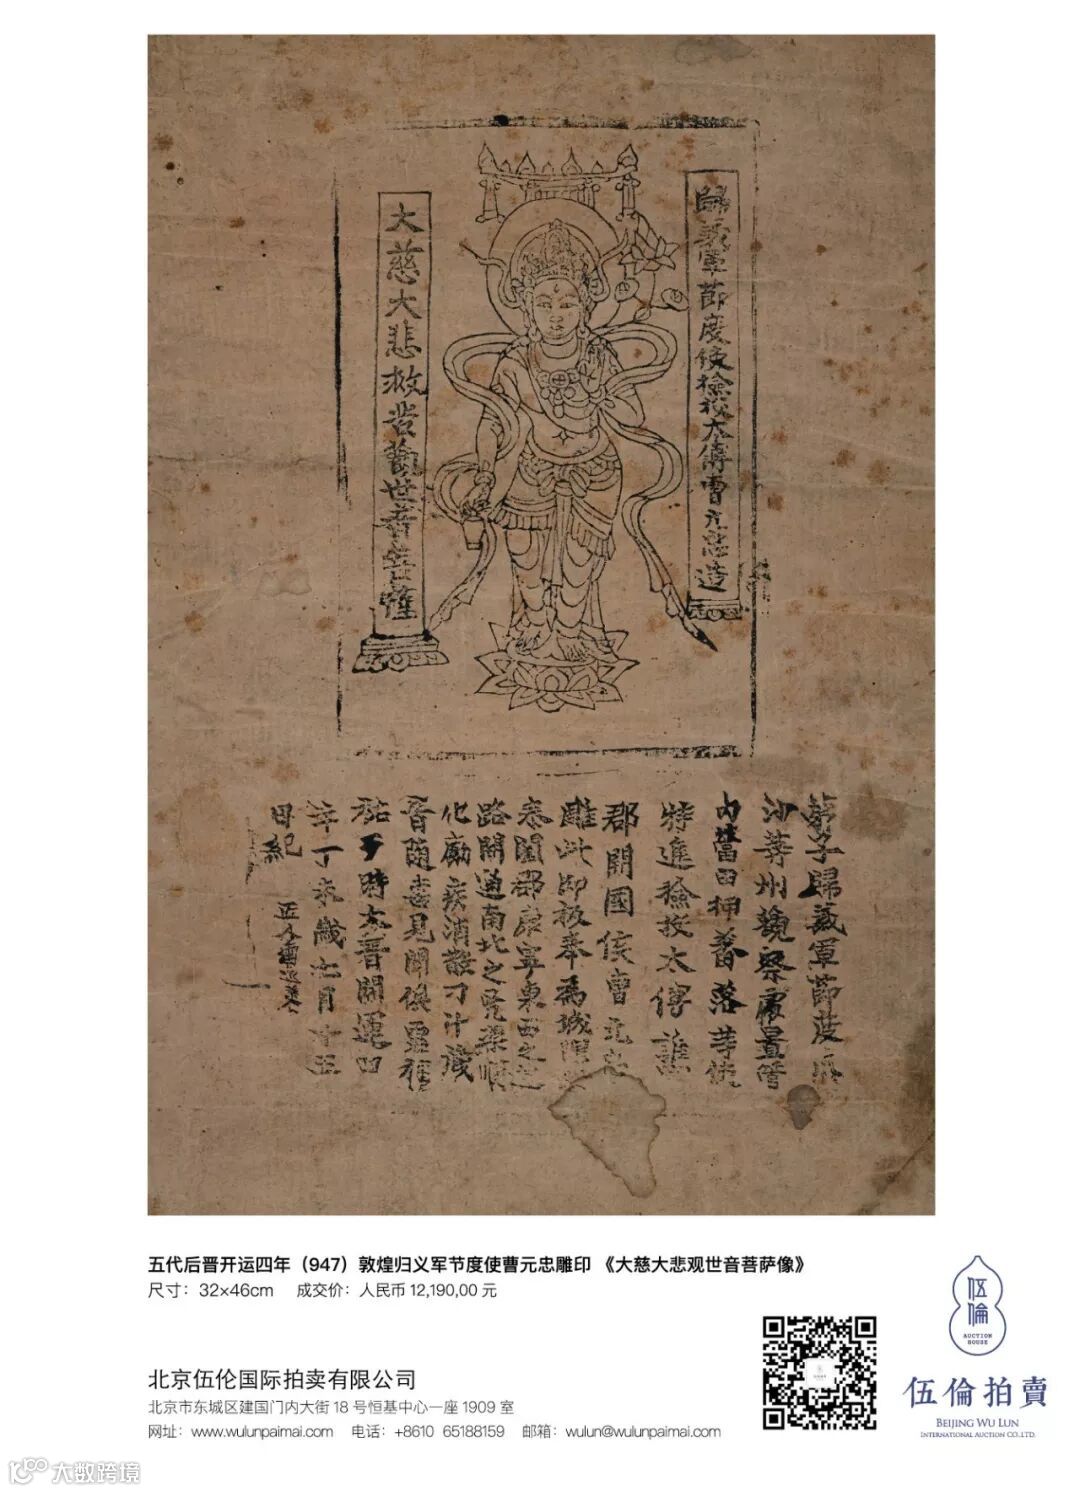 歸義軍節度使檢校太傅曹元忠造
大慈大悲救苦觀世音菩薩
弟子歸義軍節度瓜
沙等州觀察處置管
內營田押蕃落等使
特進檢校太傅譙
郡開國侯曹元忠
雕此印板奉爲城隍
泰闔郡康寧東西之
路開通南北之兇渠順
化癘疾消散刁斗藏
音隨喜見聞俱霑福
祐于時大晉開運四
年丁未歲七月十五
日紀 匠人雷延美
五代后晋开运四年（947）敦煌归义军节度使曹元忠雕印 《大慈大悲观世音菩萨像》
尺寸：32×46cm 成交价：人民币 12,190,00 元
北京伍伦国际拍卖有限公司
北京市东城区建国门内大街 18 号恒基中心一座 1909 室
网址：www.wulunpaimai.com 电话：+8610 65188159 邮箱：wulun@wulunpaimai.com
伍倫
AUCTION
HOUSE
伍倫拍賣
BEIJING WU LUN
INTERNATIONAL AUCTION CO.,LTD.
大数跨境